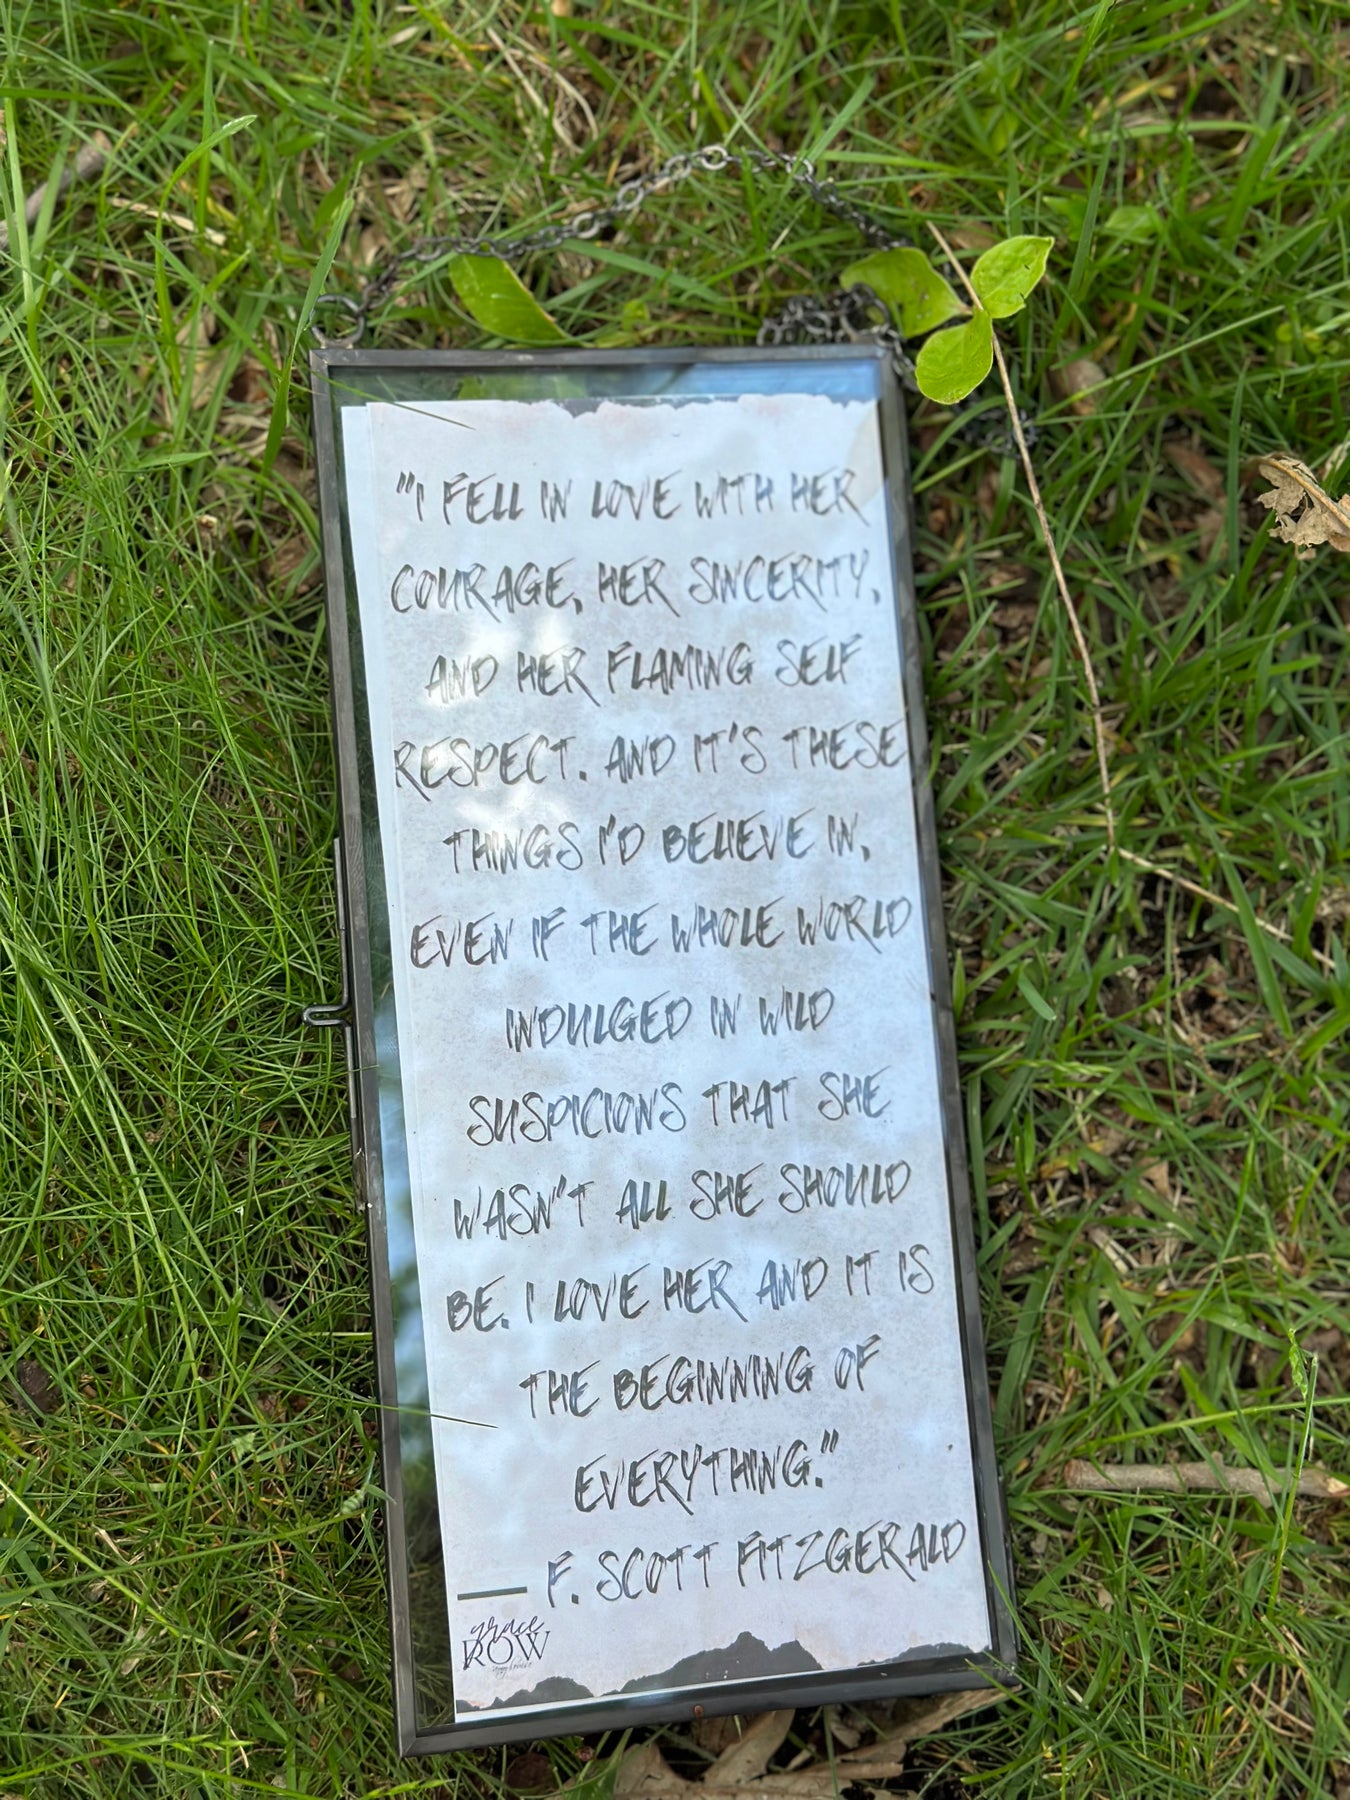 "I FELL IN LOVE WITH HER
COURAGE, HER SINCERITY,
AND HER FLAMING SELF
RESPECT. AND IT'S THESE
THINGS I'D BELIEVE IN,
EVEN IF THE WHOLE WORLD
INDULGED IN WILD
SUSPICIONS THAT SHE
WASN'T ALL SHE SHOULD
BE. I LOVE HER AND IT IS
THE BEGINNING OF
EVERYTHING."
— F. SCOTT FITZGERALD
grace
ROW